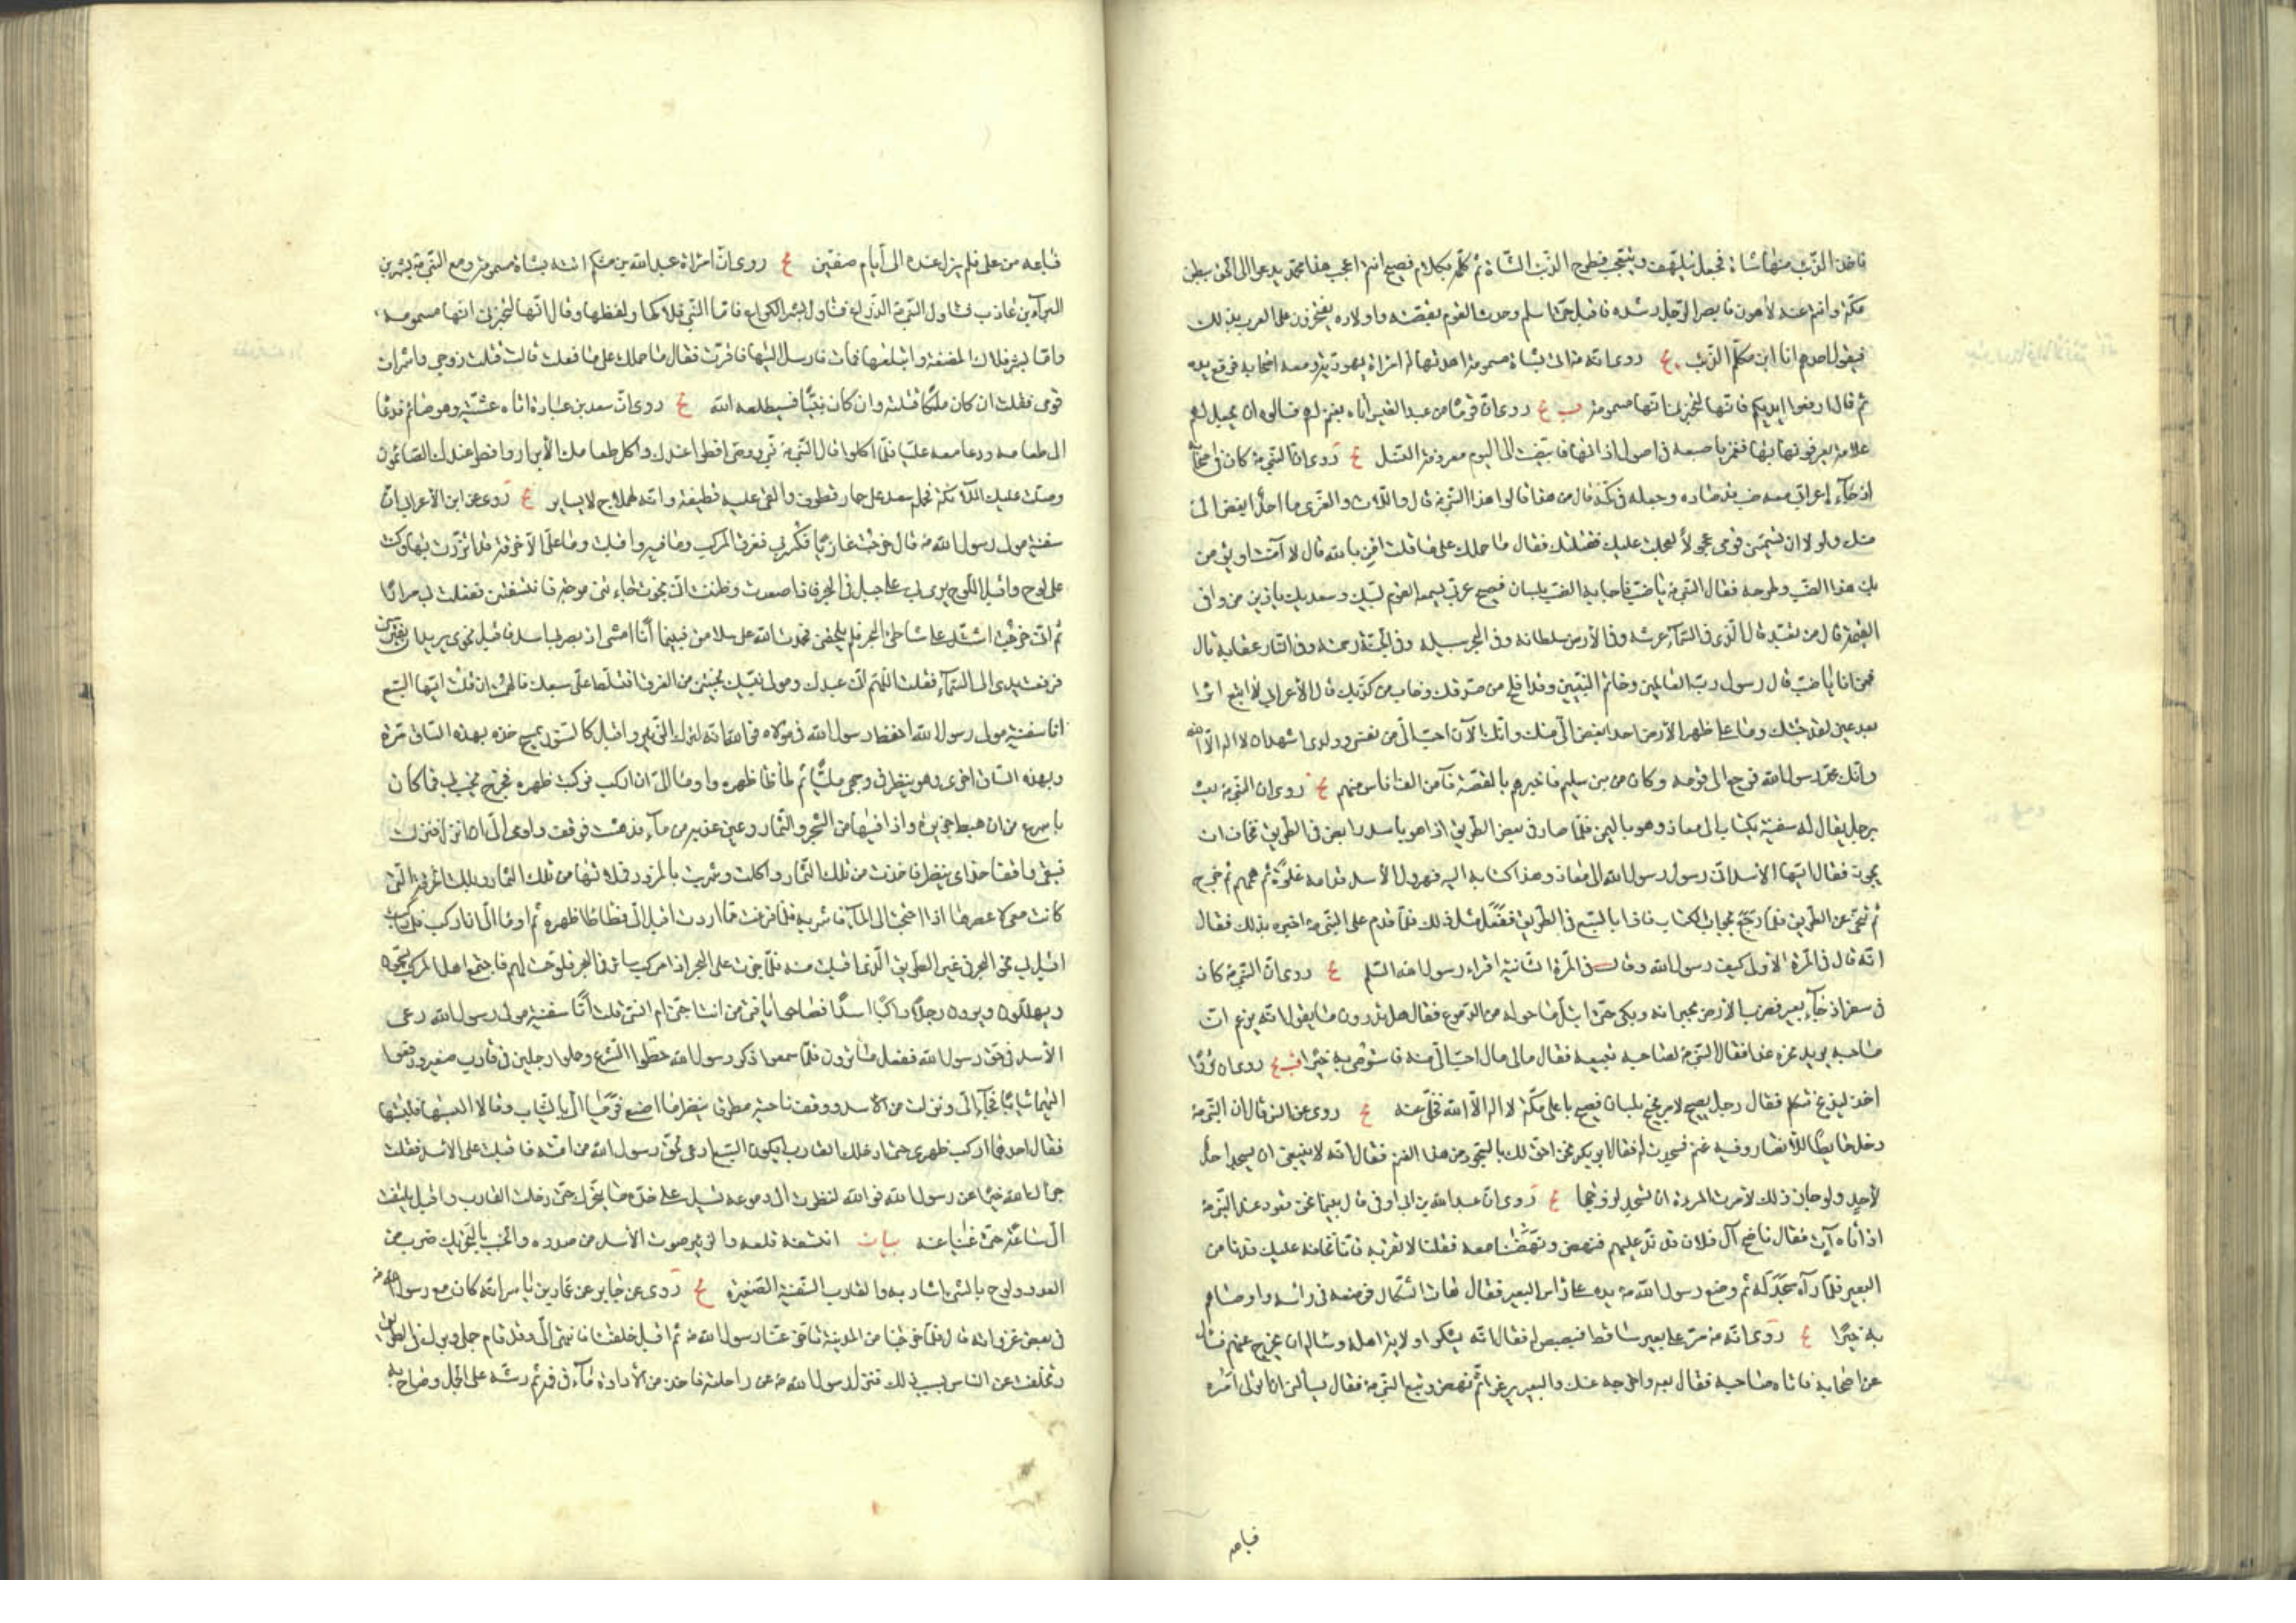 فاخذ الذئب منها شاة فجعل يتلهف ويتعجب فطرح الذئب الشاة ثم كلمه بكلام فصيح انتم اعجب هذا محمد يدعو الى الحق ببطن
مكة وانتم عنه لاهون فابصر الرجل رشده فاقبل حتى اسلم وحدث القوم بقصته واولاده يفتخرون على العرب بذلك
فيقول احدهم انا ابن مكلم الذئب يج روى انه ص اتى بشاة مسمومة اهدتها له امراة يهودية ومعه اصحابه فوضع يده
ثم قال ارفعوا ايديكم فانها تخبرنى انها مسمومة يب يج روى ان قوما من عبد القيس اتاه بغنم لهم فسالوه ان يجعل لهم
علامة يعرفونها بها فغمز باصبعه فى اصول اذانها فابيضت الى اليوم معروفة النسل يج روى ان النبى ص كان فى اصحابه
اذ جاء اعرابى معه ضب قد صاده وجعله فى كمه قال من هذا قالوا هذا النبى ص قال واللات والعزى ما احد ابغض الى
منك ولولا ان تسميني قومى عجولا لعجلت عليك فقتلتك فقال ما حملك على ما قلت امن بالله قال لا آمنت او يؤمن
بك هذا الضب وطرحه فقال النبى ص يا ضب فاجابه الضب بلسان فصيح عربى يسمعه القوم لبيك وسعديك يا زين من وافى
القيمة قال من تعبد قال الذى فى السماء عرشه وفى الارض سلطانه وفى البحر سبيله وفى الجنة رحمته وفى النار عقابه قال
فمن انا يا ضب قال رسول رب العالمين وخاتم النبيين وقد افلح من صدقك وخاب من كذبك قال الاعرابى لا اتبع اثرا
بعد عين لقد جئتك وما على ظهر الارض احد ابغض الى منك وانك الآن احب الى من نفسى وولدى اشهد ان لا اله الا الله
وانك محمد رسول الله فرجع الى قومه وكان من بنى سليم فاخبرهم بالقصة فآمن الف اناس منهم يج روى ان النبى ص بعث
برجل يقال له سفينة بكتاب الى معاذ وهو باليمن فلما صار فى بعض الطريق اذا هو باسد رابض فى الطريق فخاف ان
يجوز فقال ايها الاسد انى رسول رسول الله الى معاذ وهذا كتابه اليه فهرول الاسد قدامه غلوة ثم همهم ثم خرج
ثم تنحى عن الطريق فلما رجع بجواب الكتاب فاذا بالسبع فى الطريق ففعل مثل ذلك فلما قدم على النبى ص اخبره بذلك فقال
انه قال فى المرة الاولى كيف رسول الله وقال فى المرة الثانية اقراء رسول الله السلم يج روى ان النبى ص كان
فى سفر اذ جاء بعير فضرب الارض بجرانه وبكى حتى ابتل ما حوله من الدموع فقال هل تدرون ما يقول انه يزعم ان
صاحبه يريد نحره غدا فقال النبى ص لصاحبه تبيعه فقال مالى مال احب الى منه فاستوصى به خيرا يب يج روى ان ثورا
اخذ ليذبح فتكلم فقال رجل يصيح لامر نجيح بلسان فصيح باعلى مكة لا اله الا الله فخلى عنه يج روى عن انس قال ان النبى ص
دخل حايطا للانصار وفيه غنم فسجدت له فقال ابو بكر نحن احق لك بالسجود من هذا الغنم فقال انه لا ينبغى ان يسجد احد
لاحد ولو جاز ذلك لامرت المراة ان تسجد لزوجها يج روى ان عبد الله بن ابى اوفى قال بينما نحن قعود عند النبى ص
اذ اتاه آت فقال ناضح آل فلان قد ند عليهم فنهض ونهضنا معه فقلنا لا تقربه فانا نخافه عليك فدنا من
البعير فلما رآه سجد له ثم وضع رسول الله ص يده على راس البعير فقال هات الشكال فوضعه فى راسه واوصاهم
به خيرا يج روى انه ص مر على بعير ساقط فبصبص له فقال انه يشكو اولاية اهله وسال ان يخرج عنهم فسال
عن اصحابه فاتاه صاحبه فقال بعه واخرجه عنك والبعير يرغو ثم نهض وتبع النبى ص فقال يسالنى ان اتولى امره
فباعه
فباعه من على فلم يزل عنده الى ايام صفين يج روى ان امراة عبد الله بن مشكم اتته بشاة مسمومة ومع النبى ص بشر بن
البراء بن عازب فتناول النبى ص الذراع وتناول بشر الكراع فاما النبى فلاكها ولفظها وقال انها لتخبرنى انها مسمومة
واما بشر فلاك المضغة وابتلعها فمات فارسل اليها فاقرت فقال ما حملك على ما فعلت قالت قتلت زوجى واشراف
قومى فقلت ان كان ملكا قتلته وان كان نبيا فسيطلعه الله يج روى ان سعد بن عبادة اتاه عشية وهو صائم فدعا
الى طعامه ودعا معه عليا فلما اكلوا قال النبى ص نبى ووصى افطرا عندك واكل طعامك الابرار وافطر عندك الصائمون
وصلت عليك الملائكة فحمله سعد على حمار قطوف والقى عليه قطيفة وانه لهملاج لا يساير يج روى عن ابن الاعرابى ان
سفينة مولى رسول الله ص قال خرجت غازيا فكسر بى فغرق المركب وما فيه وافلت وما على الا خرقة قد اتزرت بها وكنت
على لوح واقبل اللوح يرمى بى على جبل فى البحر فاذا صعدت وظننت انى نجوت جاءتنى موجة فانتسفتنى ففعلت بى مرارا
ثم انى خرجت اشتد على شاطئ البحر فلم يلحقنى فحمدت الله على سلامتى فبينما انا امشى اذ بصر بى اسد فاقبل نحوى يريد ان يفترسنى
فرفعت يدى الى السماء فقلت اللهم انى عبدك ومولى نبيك نجيتنى من الغرق افتسلط على سبعك فالهمت ان قلت ايها السبع
انا سفينة مولى رسول الله احفظ رسول الله فى مولاه فوالله انه لترك الزئير واقبل كالسنور يمسح خده بهذه الساق مرة
وبهذه الساق اخرى وهو ينظر فى وجهى مليا ثم طأطأ ظهره واومأ الى ان اركب فركبت ظهره فخرج يخب بى فما كان
باسرع من ان هبط جزيرة واذا فيها من الشجر والثمار وعين عذبة من ماء فدهشت فوقف واومى الى ان انزل فنزلت
فبقى واقفا حذاى ينظر فاخذت من تلك الثمار واكلت وشربت
كانت معى لاعصرها اذا احتجت الى الماء فاشربه فلما فرغت مما اردت اقبل الى فطأطأ ظهره ثم اومأ الى ان اركب فلما ركبت
اقبل بى نحو البحر فى غير الطريق الذى اقبلت منه فلما جزت على البحر اذا مركب سائر فى البحر فلوحت لهم فاجتمع اهل المركب يسبحون
ويهللون ويرون رجلا راكبا اسدا فصاحوا يا فتى من انت اجنى ام انسى قلت انا سفينة مولى رسول الله رعى
الاسد فى حق رسول الله ففعل ما ترون فلما سمعوا ذكر رسول الله حطوا الشرع وحملوا رجلين فى قارب صغير ودفعوا
اليهما ثيابا فجاءا الى ونزلت من الاسد ووقف ناحية مطرقا ينظر ما اصنع فرميا الى بالثياب وقالا البسها فلبستها
فقال احدهما اركب ظهرى حتى ادخلك القارب ايكون السبع ارعى لحق رسول الله من امته فاقبلت على الاسد فقلت
جزاك الله خيرا عن رسول الله فوالله لنظرت الى دموعه تسيل على خده ما يتحرك حتى دخلت القارب واقبل يلتفت
الى ساعة حتى غبنا عنه بيان انتسفه قلعه والزئير صوت الاسد من صدره والخبب بالتحريك ضرب من
العدو ولوح بالشئ اشار به والقارب السفينة الصغيرة يج روى عن جابر عن عمار بن ياسر انه كان مع رسول الله ص
فى بعض غزواته قال فلما خرجنا من المدينة تاخر عنا رسول الله ص ثم اقبل خلفنا فانتهى الى وقد قام جملى وبرك فى الطريق
وتخلفت عن الناس بسبب ذلك فنزل رسول الله ص عن راحلته فاخذ من الاداوة ماء فى فمه ثم رشه على الجمل وصاح به